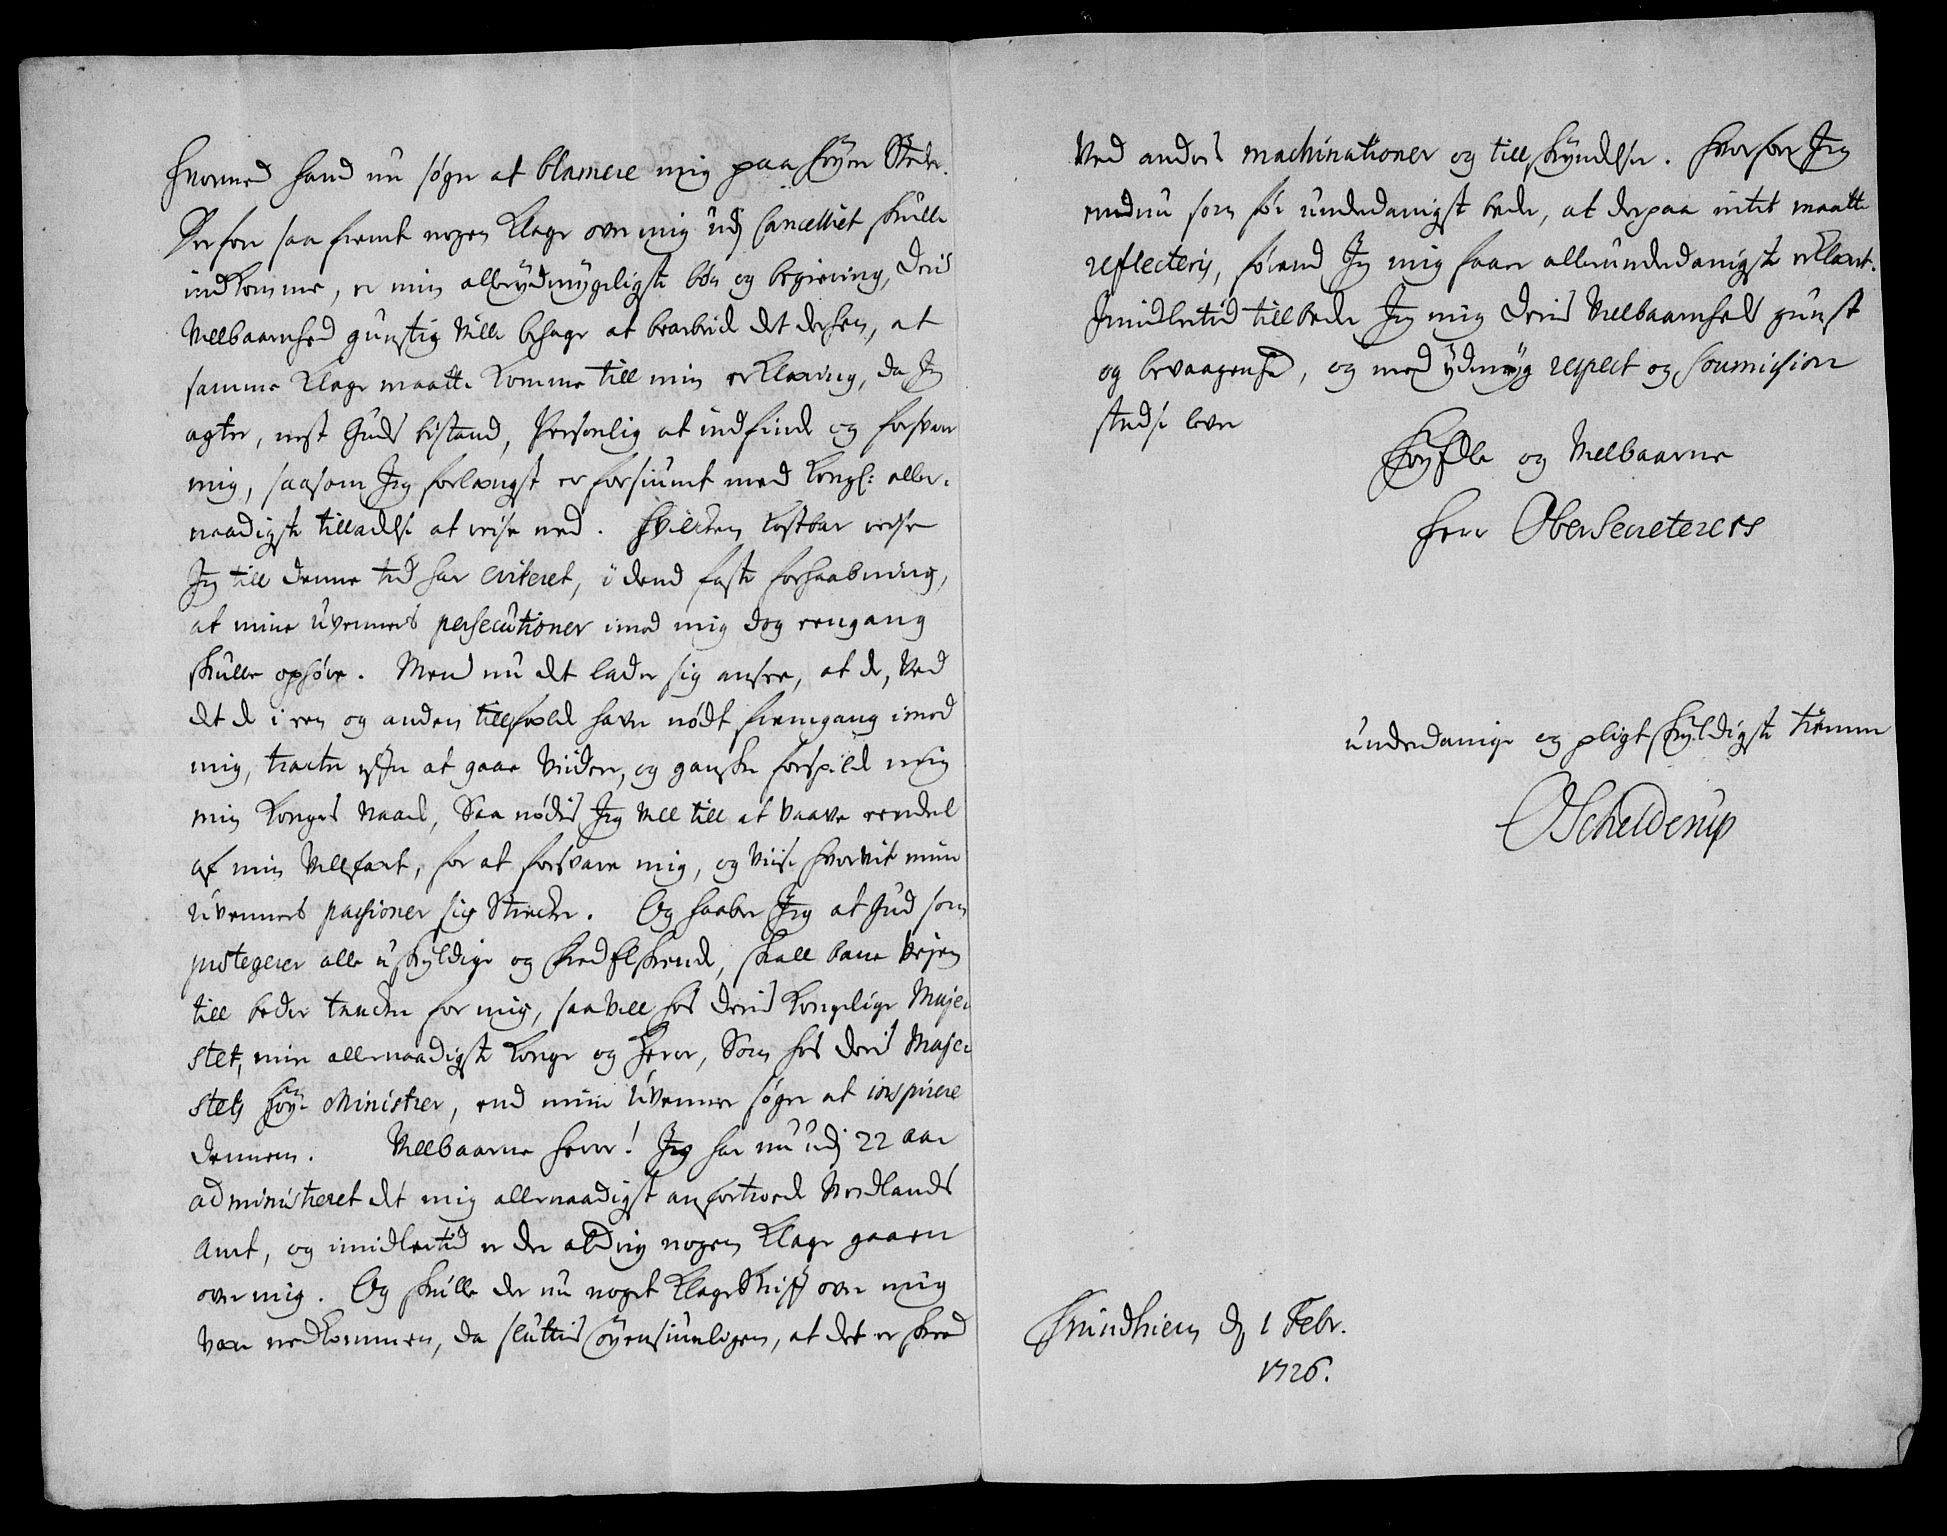 hvormed hand nu søger at blamere mig paa høyere Steder.
Derfor saa fremt nogen Klage over mig udj Cancelliet skulle
indkomme, er min allerydmygeligste bøn og begiering, deris
Velbaarenhed gunstig Ville behage at bearbeide det derhen, at
samme Klage maatte komme till min erklæring, da Jeg
agter, nest Guds bistand, Personlig at indfinde og forsvare
mig, saasom Jeg forlængst er forsiunt med Kongl: aller-
naadigste tilladelse at reise ned. Hvilcken kostbar reise
Jeg till denne tid har eviteret, i dend faste forhaabning,
at mine Uvenners persecutioner imod mig dog eengang
skulle ophøre. Mend nu det lader sig ansee, at de, Ved
det de i een og anden tillfæld haver nødt fremgang imod
mig, tracter efter at gaae Viidere, og ganske forspilde mig
min Konges Naade, Saa nødes Jeg Vell till at Vaave eendel
af min Vellfært, for at forsvare mig, og Viise hvorvit mine
Uvenners passioner sig Strecker. Og haaber Jeg at Gud som
protegerer alle uskyldige og fredelskende, skall bane Vejen
till beder tancker for mig, saa Vell hos deris Kongelige Maje-
stet, min allernaadigste Konge og Herre, Som hos deris Maje-
stets høye Ministrer, end mine Uvenner søger at inspirere
dennem. Velbaarne Herre! Jeg har nu udj 22 aar
administreret det mig allernaadigst anfortroede Nordlands
Amt, og imidlertid er der alDrig nogen Klage gaaen
over mig. Og skulle der nu noget Klage Skrift over mig
være nedkommen, da sluttes øyensiunligen, at det er skeed
Ved anders machinationer og tillskyndelser. Hvorfor Jeg
endnu som før underdanigst beder, at derpaa intet maatte
reflecteris, førend Jeg mig faaer allerunderdanigste erklæret.
Imidlertid tillbeder Jeg mig deris Velbaarenheds gunst
og bevaagenhed, og med ydmyg respect og soumission
stedse lever
Høyædle og Velbaarne
Herr Obersecreterers
underdanige og pligtskyldigste tienner
OSchelderup
Trundhiem d. 1 Febr.
1726.